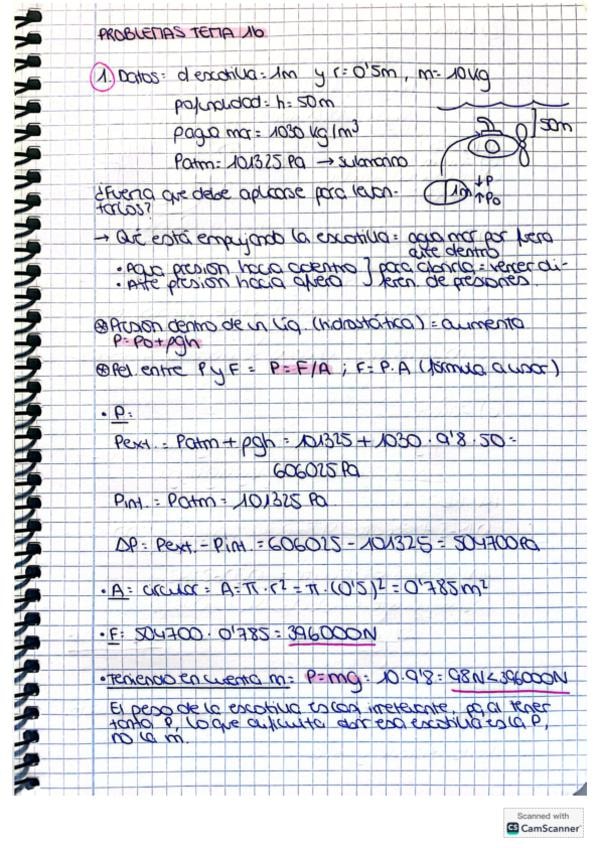 PROBLEMAS TEMA 1b
1. Datos: d escotilla = 1m y r = 0'5m, m = 10 kg
profundidad = h = 50m
ρagua mar = 1030 kg/m³
Patm = 101325 Pa → submarino
50m
1m ↓P
↑P0
¿Fuerza que debe aplicarse para levan-
tarlos?
→ Qué está empujando la escotilla = agua mar por fuera
aire dentro
• Agua presión hacia adentro } para abrirla = vencer di-
• Aire presión hacia afuera } feren. de presiones.
⊛ Presión dentro de un líq. (hidrostática) = aumenta
P = P0 + ρgh
⊛ Rel. entre P y F = P = F/A ; F = P·A (fórmula a usar)
• P:
Pext. = Patm + ρgh = 101325 + 1030 · 9'8 · 50 =
606025 Pa
Pint. = Patm = 101325 Pa
ΔP = Pext. - Pint. = 606025 - 101325 = 504700 Pa
• A: circular = A = π · r² = π · (0'5)² = 0'785 m²
• F: 504700 · 0'785 = 396000N
• Teniendo en cuenta m: P = mg = 10 · 9'8 = 98N < 396000N
El peso de la escotilla es casi irrelevante, pq al tener
tanta P, lo que dificulta abrir esa escotilla es la P,
no la m.
Scanned with
CS CamScanner